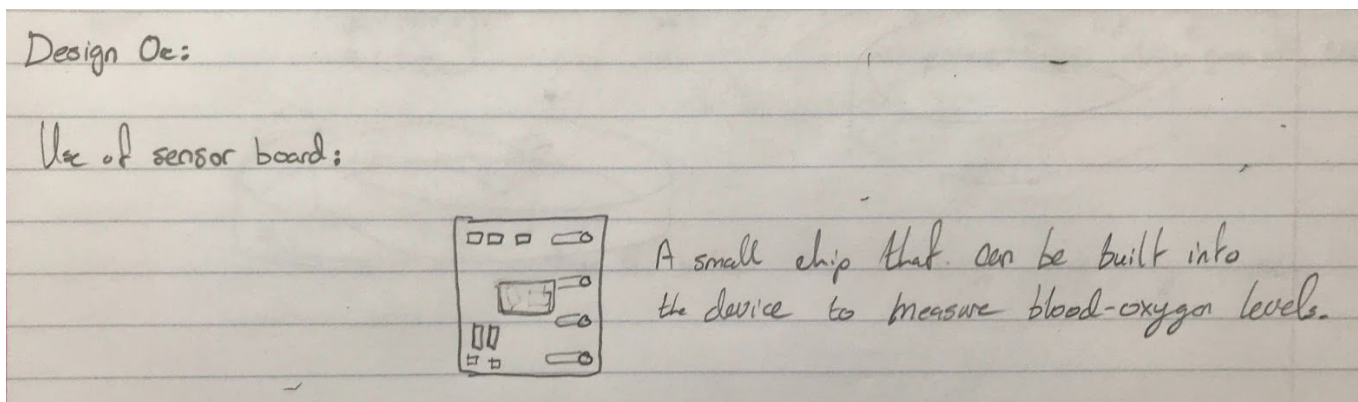 Design One:
Use of sensor board:
A small chip that can be built into
the device to measure blood-oxygen levels.